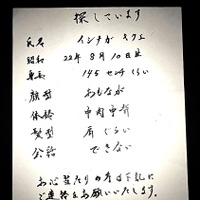 探しています
氏名 イシナガ キクエ
昭和 22年8月10日生
身長 145センチくらい
顔型 おもなが
体格 中肉中背
髪型 肩ぐらい
会話 できない
お心当たりの方は下記に
ご連絡をお願いいたします。